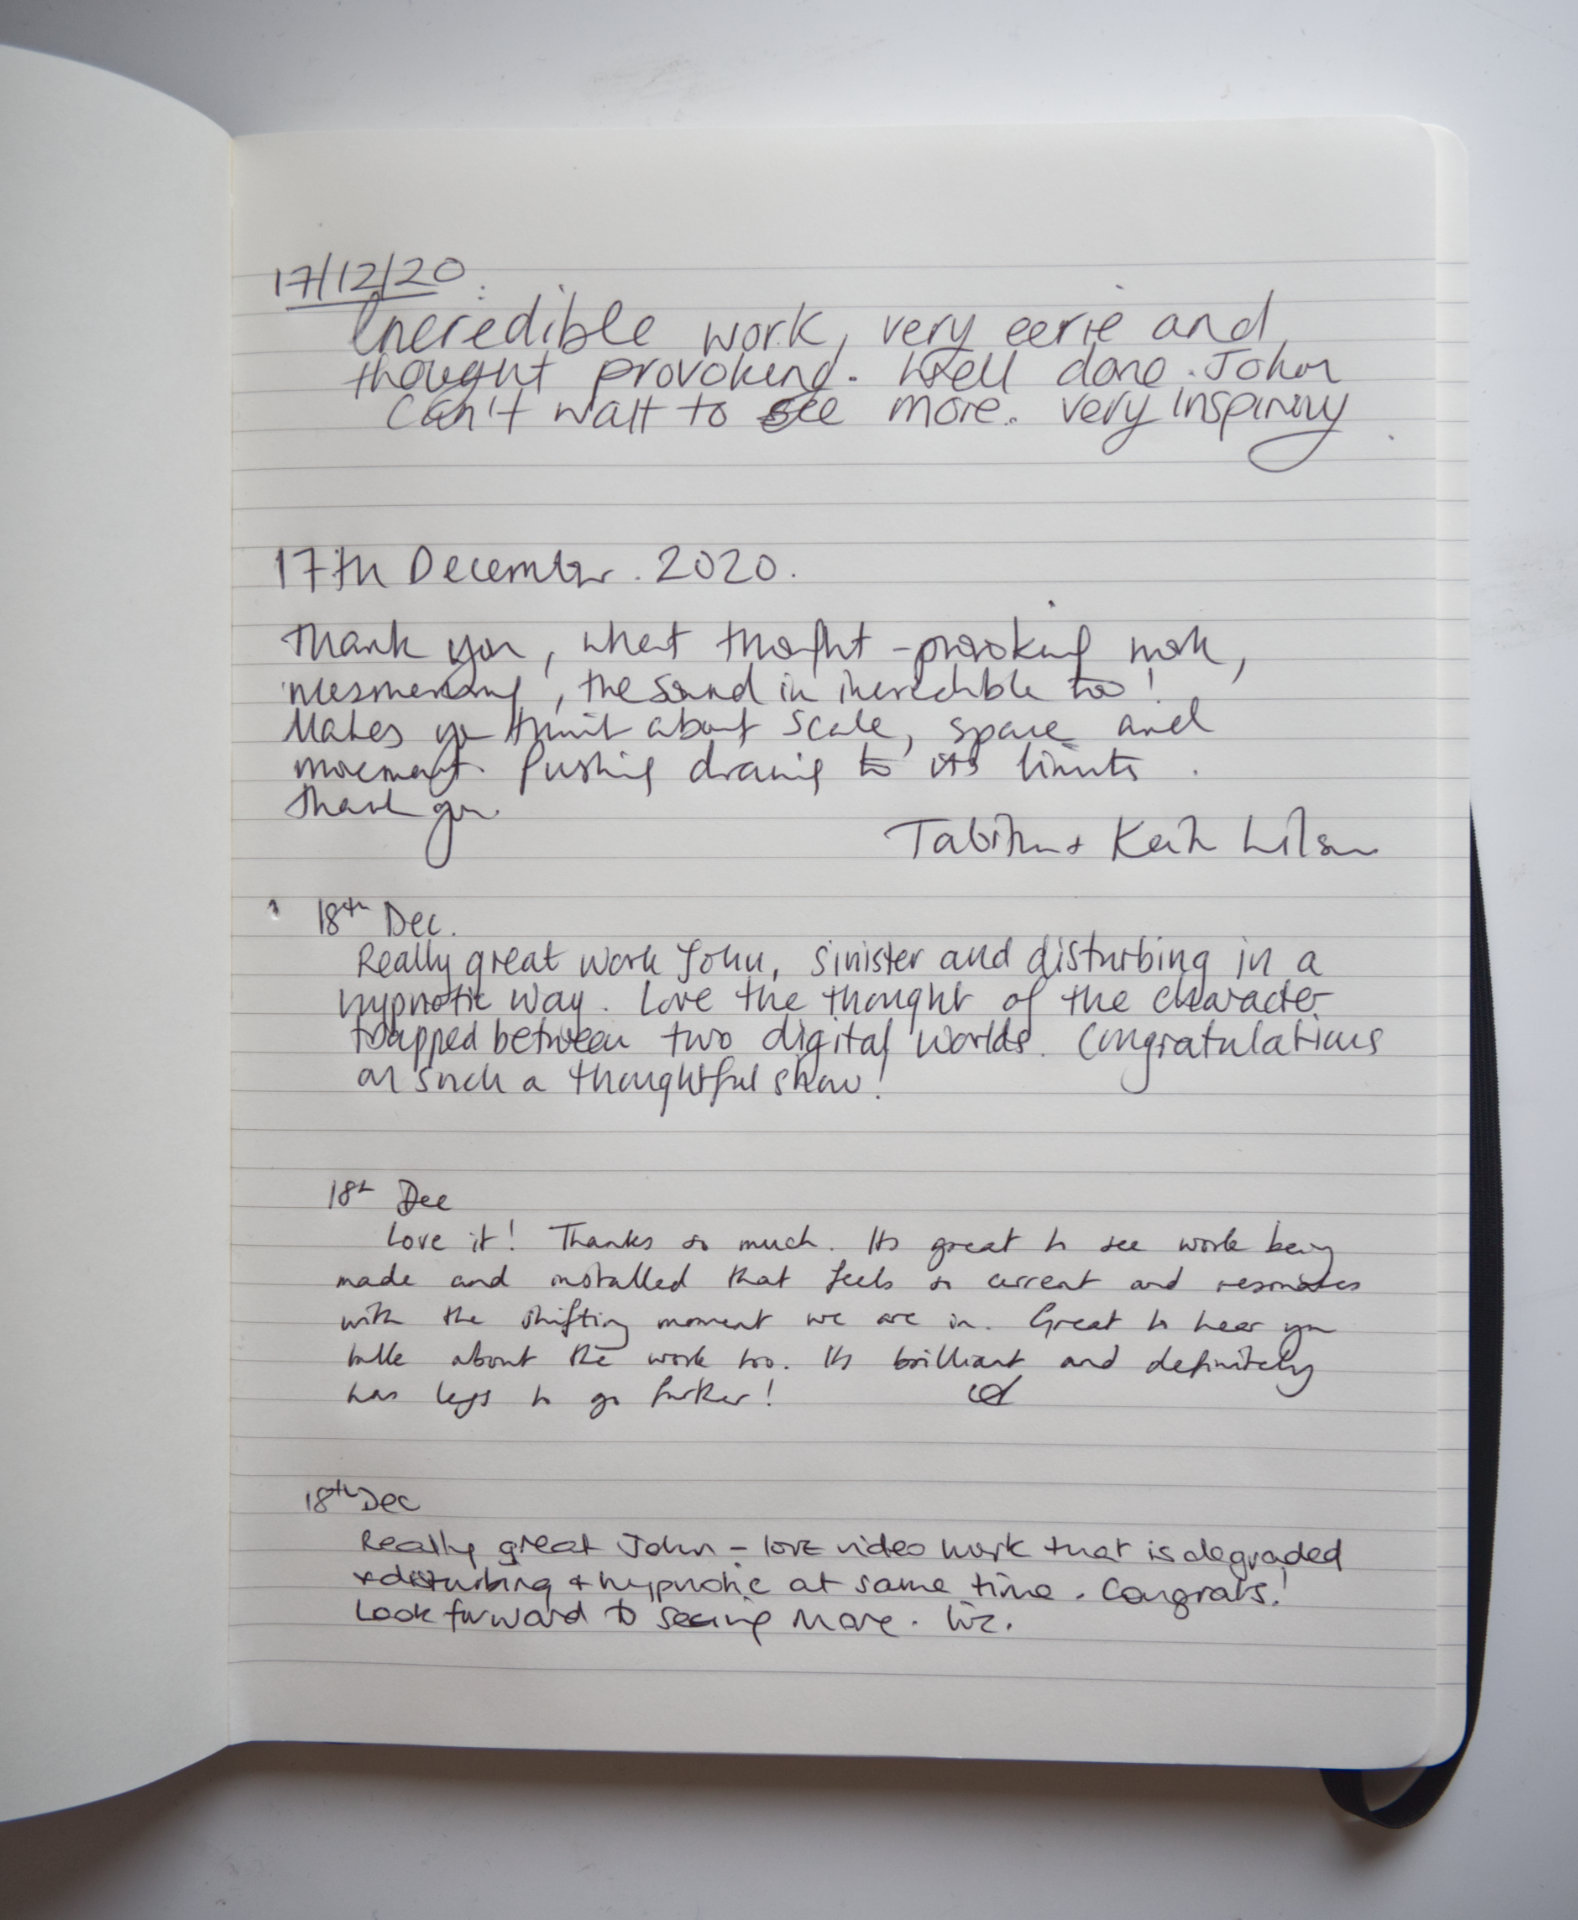 17/12/20:
Incredible work, very eerie and
thought provoking. Well done. John
Can't wait to see more. very inspiring
17th December. 2020.
Thank you, what thought-provoking work,
mesmerising, the sound in incredible too!
Makes you think about scale, space and
movement. Pushing drawing to its limits.
Thank you.
Tabitha + Keith Wilson
18th Dec.
Really great work John, sinister and disturbing in a
hypnotic way. Love the thought of the character
trapped between two digital worlds. Congratulations
on such a thoughtful show!
18th Dec
Love it! Thanks so much. Its great to see work being
made and installed that feels so current and resonates
with the shifting moment we are in. Great to hear you
talk about the work too. Its brilliant and definitely
has legs to go further!
18th Dec
Really great John - love video work that is degraded
+ disturbing + hypnotic at same time. Congrats!
Look forward to seeing more. Liz.